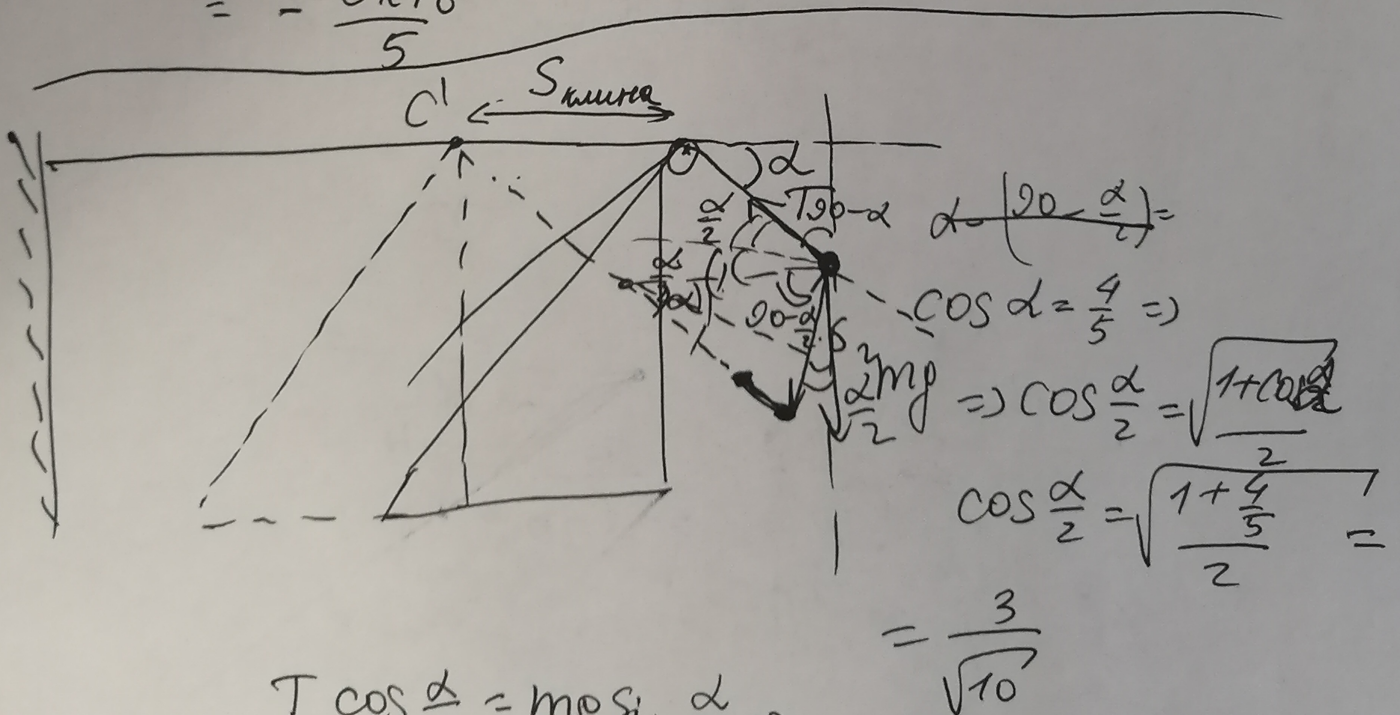 = - /5
C' S клина
α
α/2 T 90-α α-(90-α/2)=
α/2
90-α/2 cos α = 4/5 =>
α/2 mg => cos α/2 = √((1+cosα)/2)
cos α/2 = √((1+4/5)/2) =
= 3/√10
T cos α = mg si α